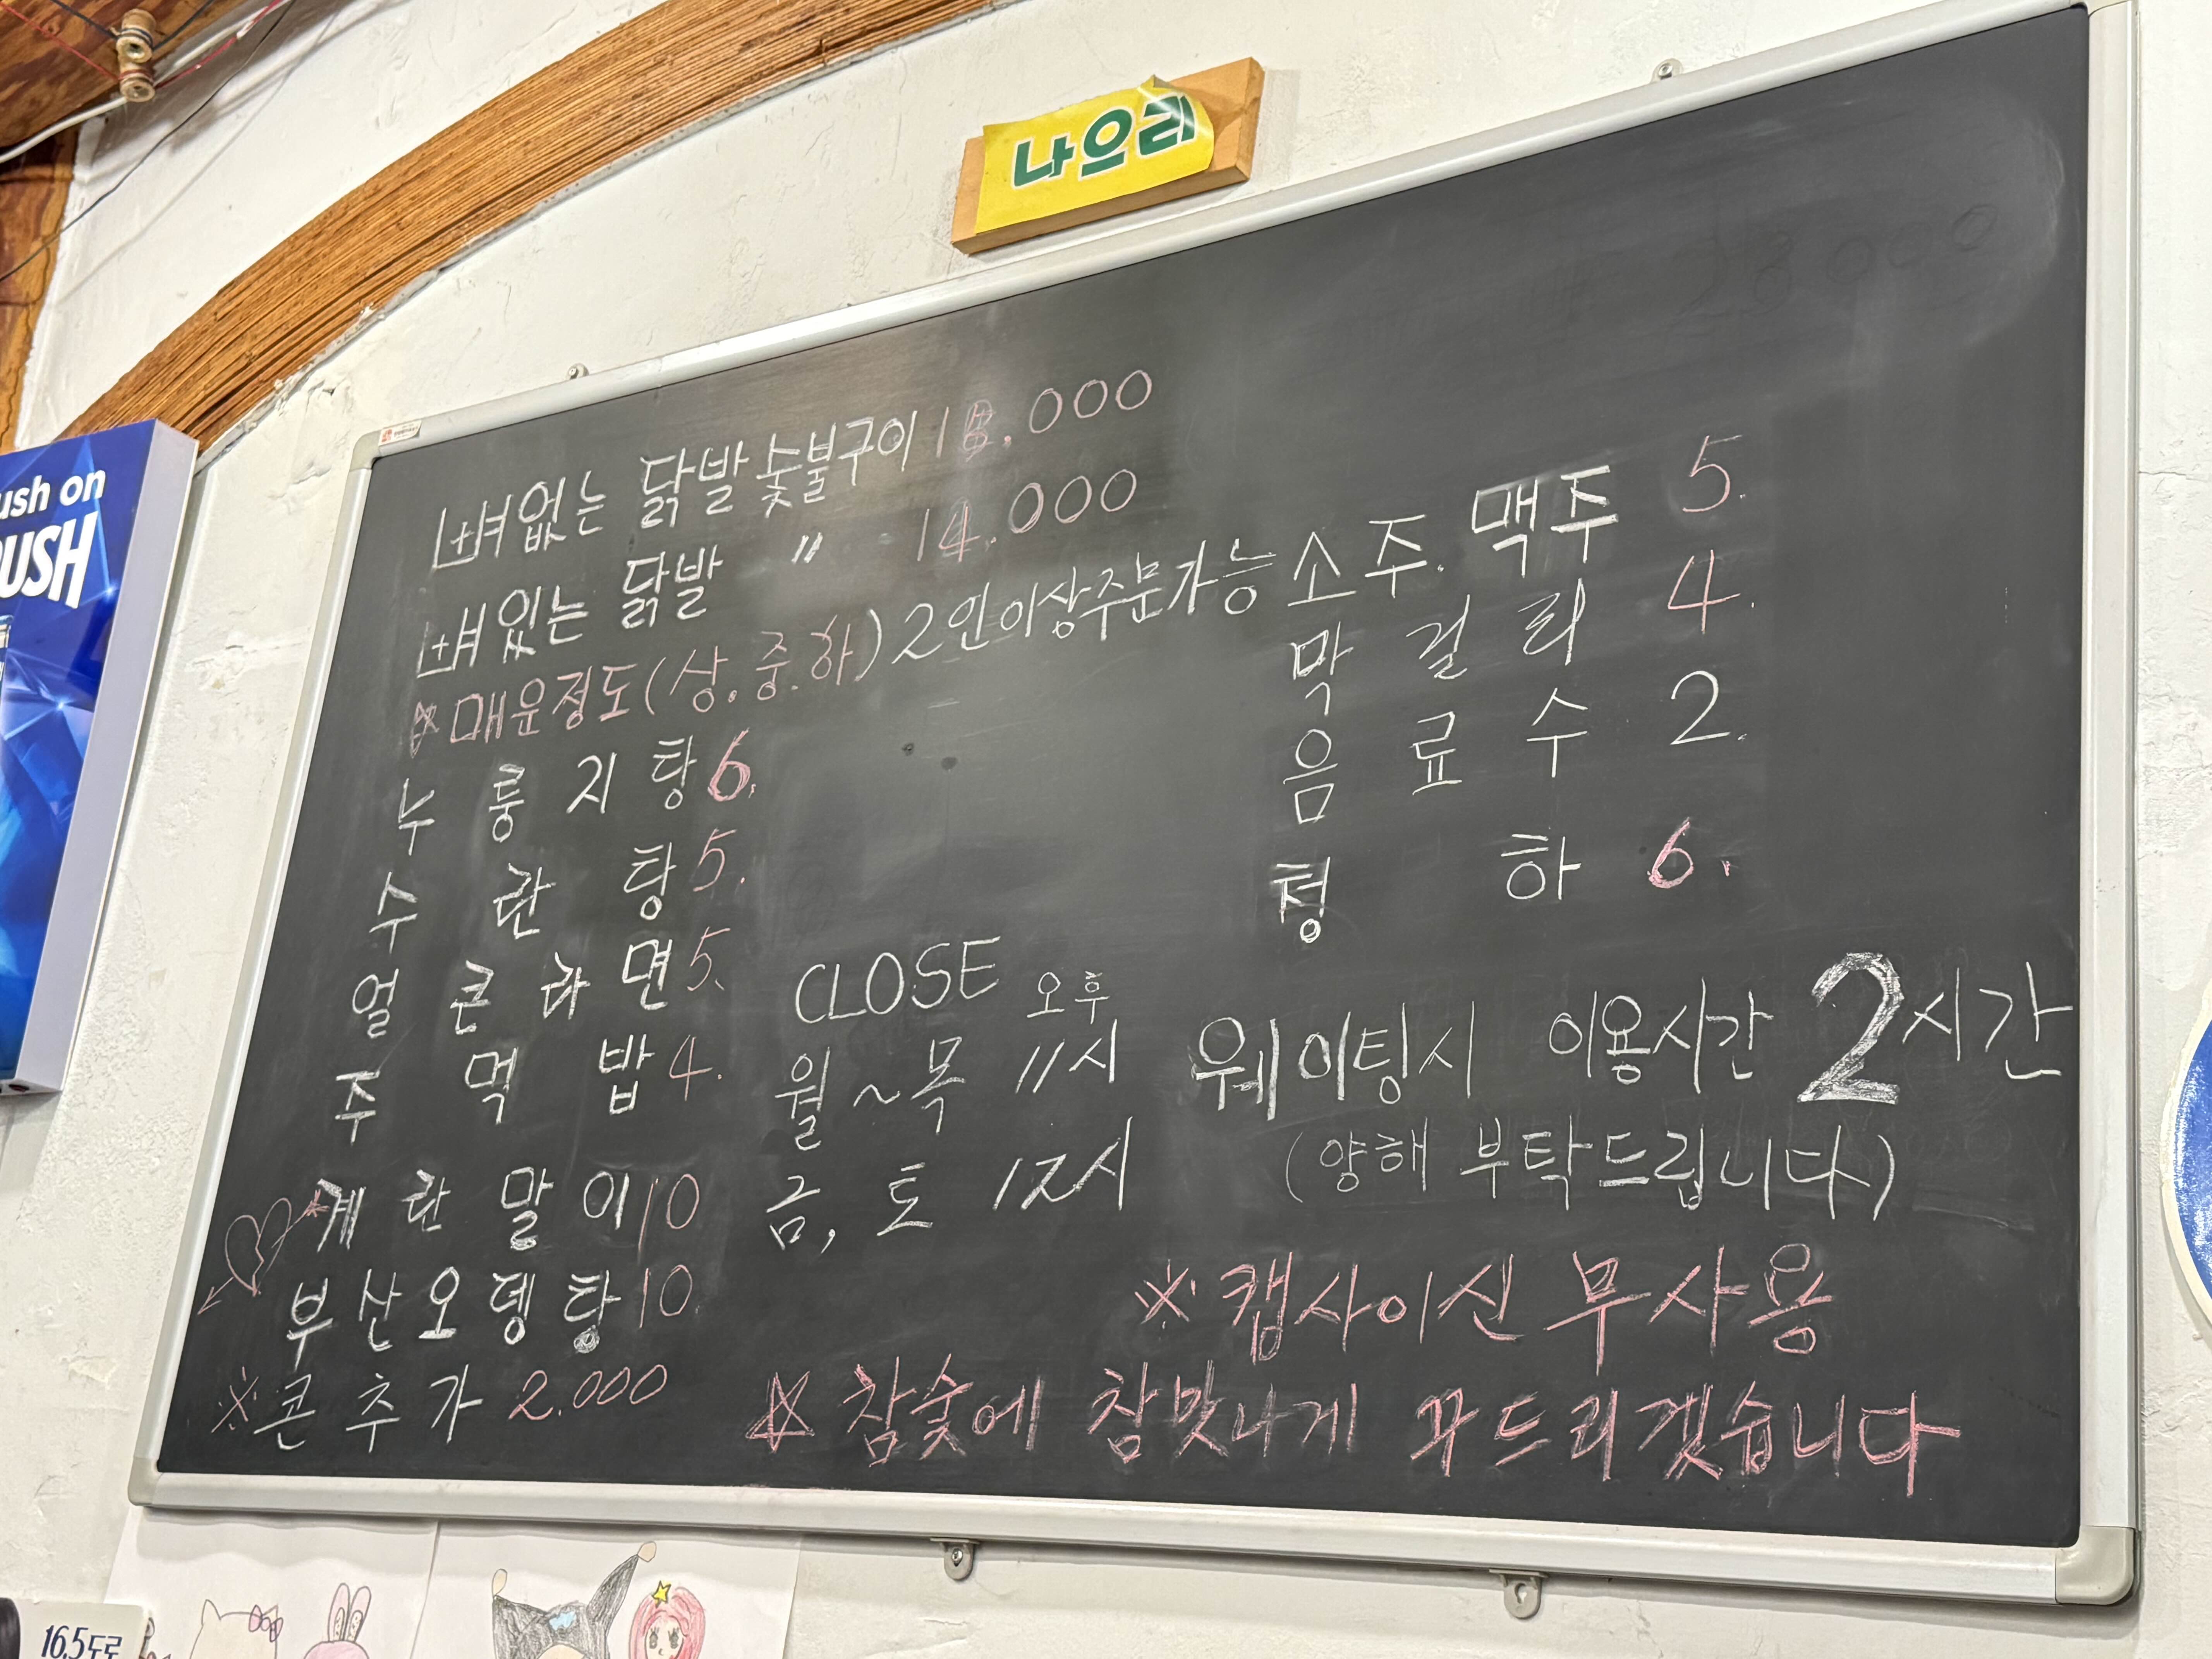 나으리
뼈없는 닭발 숯불구이 18.000
뼈있는 닭발 〃 14.000
※매운정도(상.중.하) 2인이상주문가능
누룽지탕 6.
수란탕 5.
얼큰라면 5.
주먹밥 4.
계란말이 10
부산오뎅탕 10
※콘추가 2.000
소주. 맥주 5.
막걸리 4.
음료수 2.
청하 6.
CLOSE 오후
월~목 11시
금, 토 12시
웨이팅시 이용시간 2시간
(양해 부탁드립니다)
※캡사이신 무사용
※참숯에 참맛나게 꾸드리겠습니다
ush on
USH
16.5도로